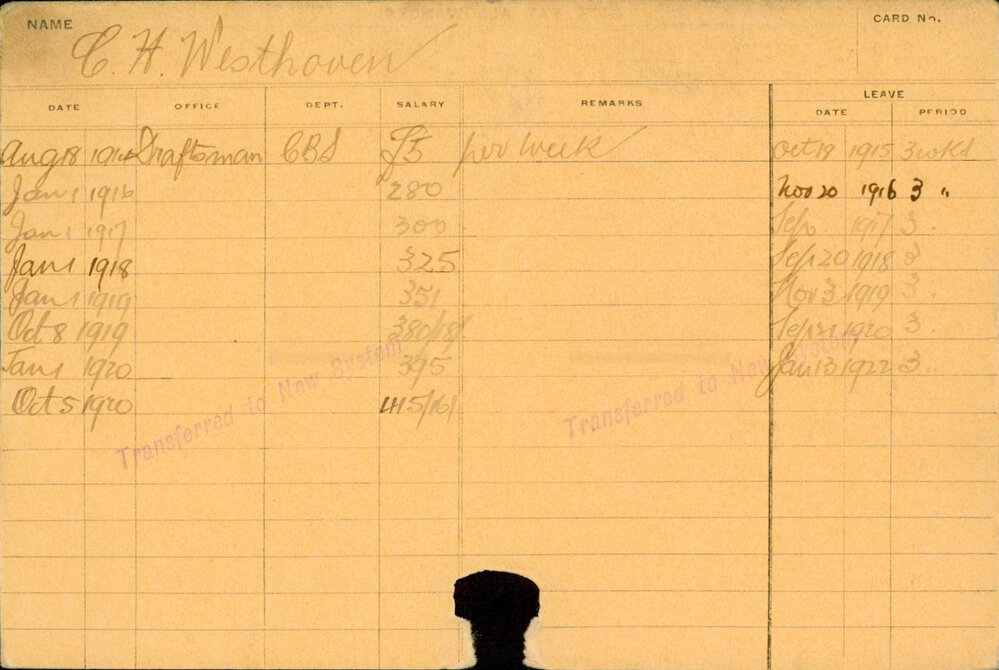 NAME C. H. Westhoven CARD No.
LEAVE
DATE OFFICE DEPT. SALARY REMARKS DATE PERIOD
Aug 18 1914 Draftsman CBS £5 per week Oct 18 1915 3 wks
Jan 1 1916 280 Nov 20 1916 3 "
Jan 1 1917 300 Sep. 1917 3 .
Jan 1 1918 325 Sep 20 1918 3
Jan 1 1919 351 Nov 3 1919 3 .
Oct 8 1919 380/18/ Sep 1920 3 .
Jan 1 1920 395 Jan 13 1922 3 ..
Oct 5 1920 415/16/
Transferred to New System
Transferred to New System